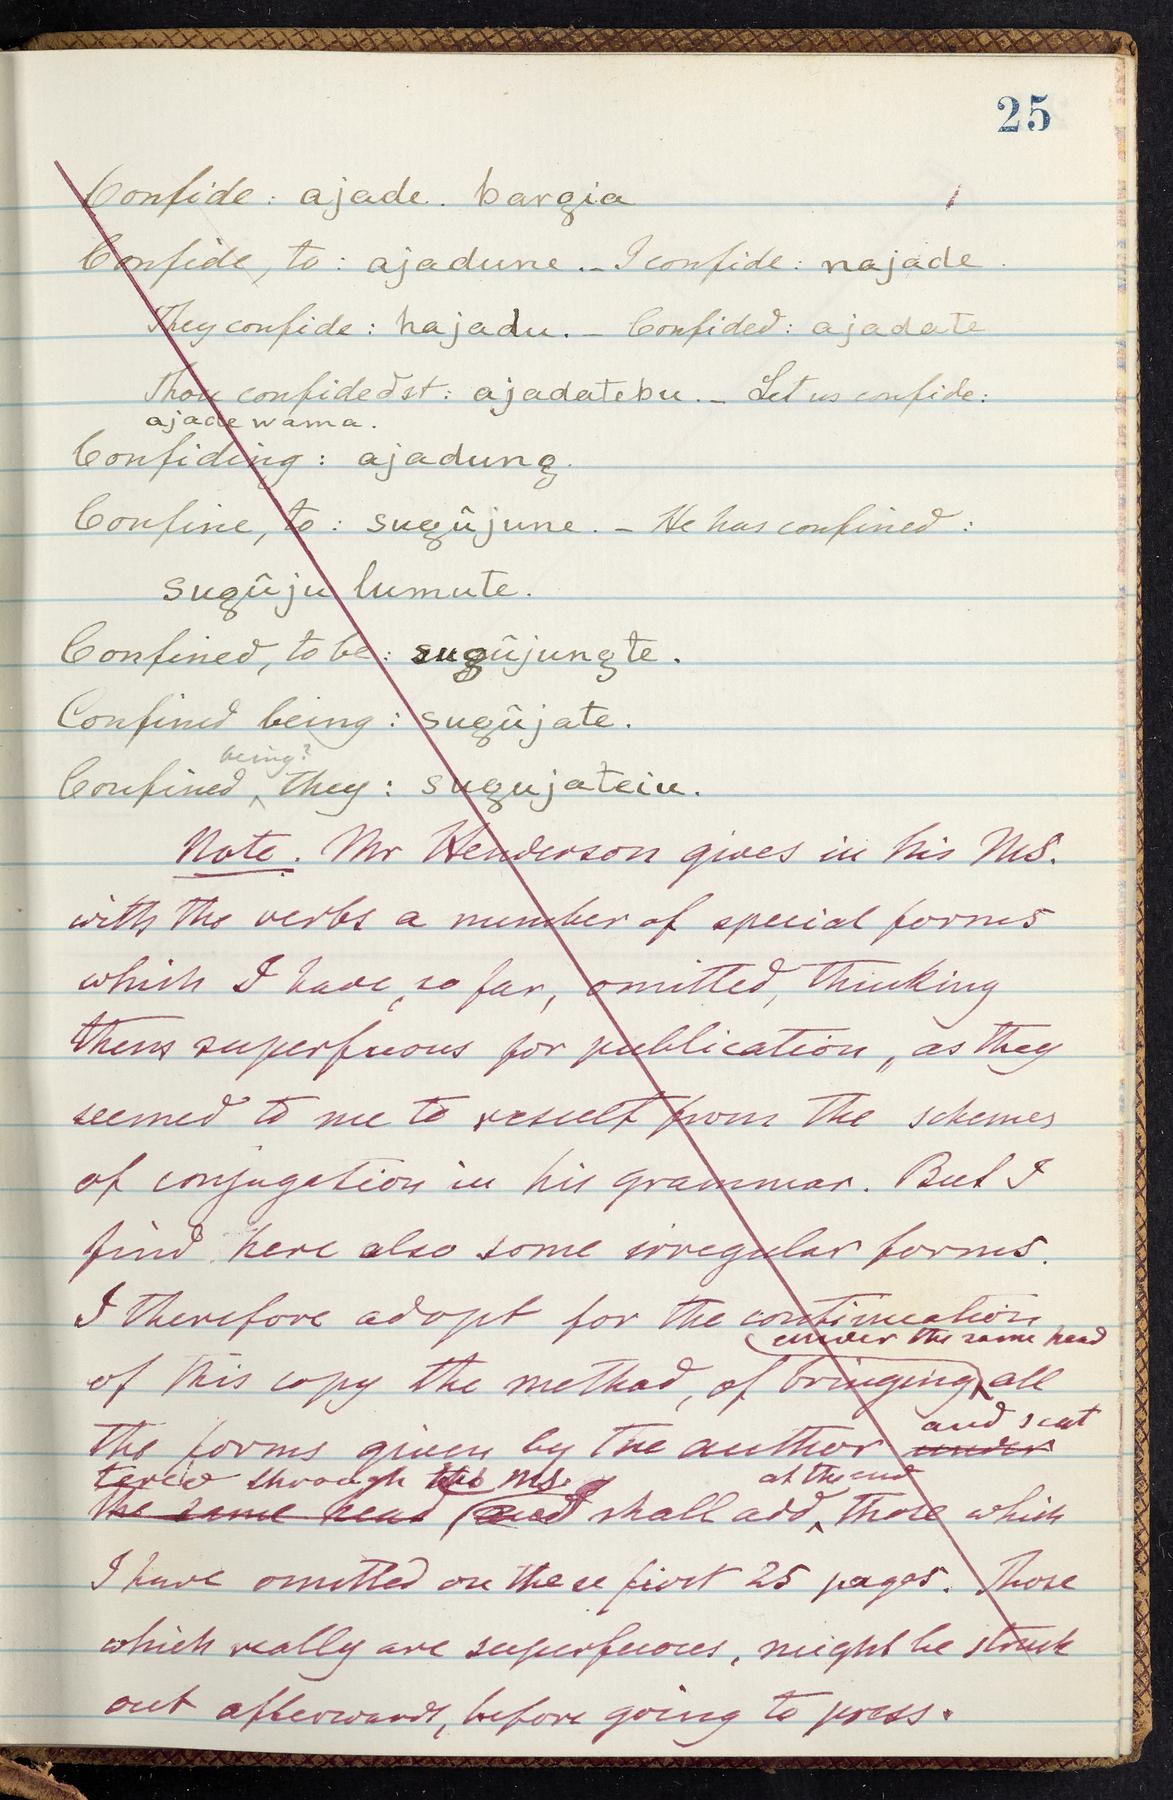 25
Confide: ajade. bargia
Confide, to: ajadune. – I confide: najade.
They confide: hajadu. – Confided: ajadate
Thou confidedst: ajadatebu. – Let us confide:
ajade wama.
Confiding: ajadung.
Confine, to: sugûjune. – He has confined:
sugûju lumute.
Confined, to be: sugûjungte.
Confined being: sugûjate.
being?
Confined, they: sugujateiu.
Note. Mr Henderson gives in his MS.
with the verbs a number of special forms
which I have, so far, omitted, thinking
them superfluous for publication, as they
seemed to me to result from the schemes
of conjugation in his grammar. But I
find here also some irregular forms.
I therefore adopt for the continuation
under the same head
of this copy the method, of bringing all
and scat
the forms given by the author under
tered through the MS. at the end
the same head and shall add, those which
I have omitted on these first 25 pages. Those
which really are superfluous, might be struck
out afterwards, before going to press.